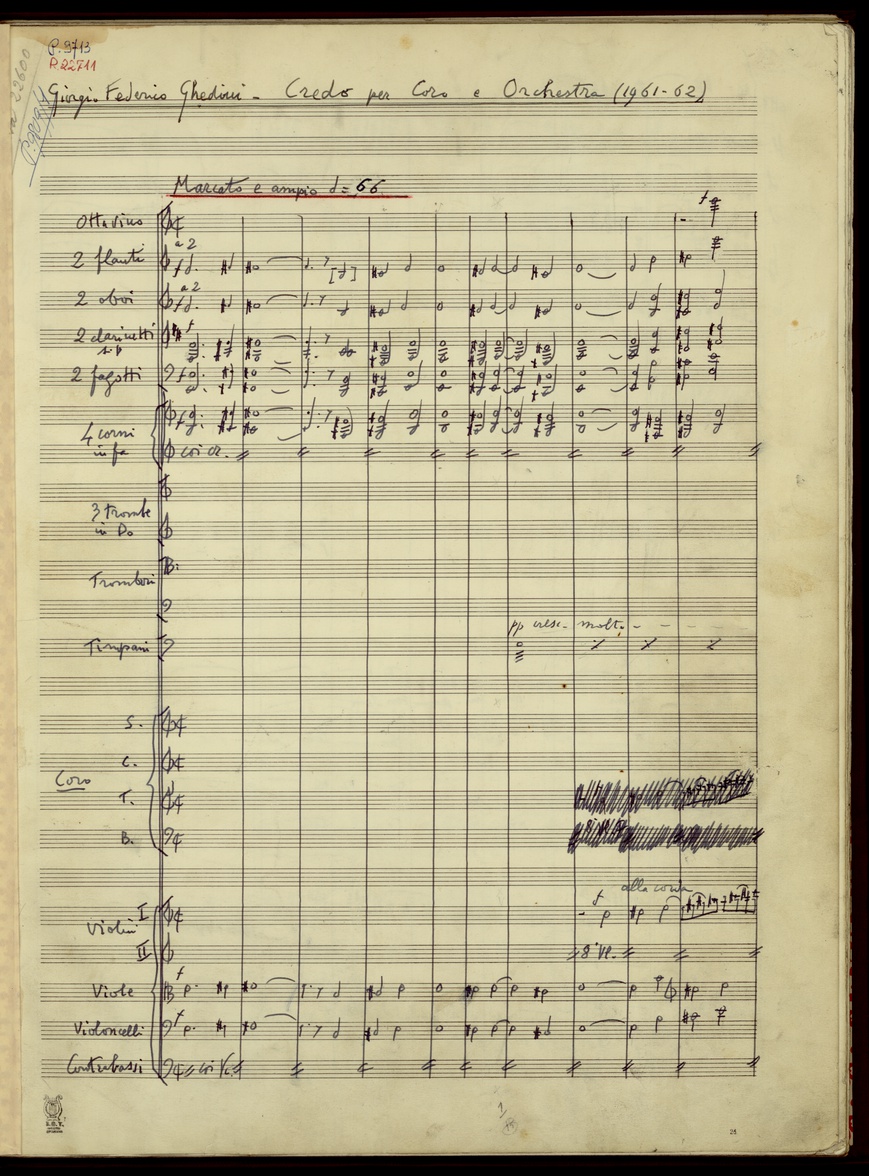 P. 9713
P. 22711
Giorgio Federico Ghedini - Credo per Coro e Orchestra (1961-62)
Marcato e ampio 𝅗𝅥 = 66
Ottavino
f
2 flauti
a 2
f
2 oboi
a 2
f
2 clarinetti
si b
f
2 fagotti
f
4 corni
in fa
f
coi cr.
3 trombe
in Do
Tromboni
pp cresc. molto - - - -
Timpani
S.
C.
Coro
T.
B.
alla corda
f
Violini
I
II
8ª Vl.
Viole
f
Violoncelli
f
Contrabassi
coi Vc.
24